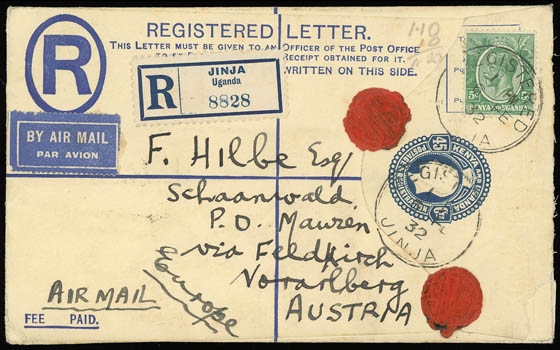 REGISTERED LETTER.
THIS LETTER MUST BE GIVEN TO AN OFFICER OF THE POST OFFICE
RECEIPT OBTAINED FOR IT.
WRITTEN ON THIS SIDE.
R
R
JINJA
Uganda
8828
BY AIR MAIL
PAR AVION
F. Hilbe Esq
Schaanwald
P.O. Mauren
via Feldkirch
Vorarlberg
AUSTRIA
Europe
AIR MAIL
FEE PAID.
1.10
KENYA AND UGANDA
JINJA
32
JINJA